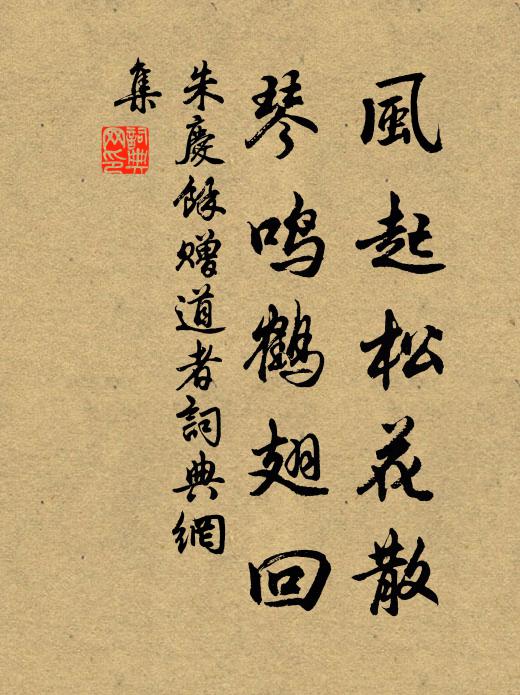 風起松花散
琴鳴鶴翅回
朱慶餘贈道者詞典網
集
詞典
网印